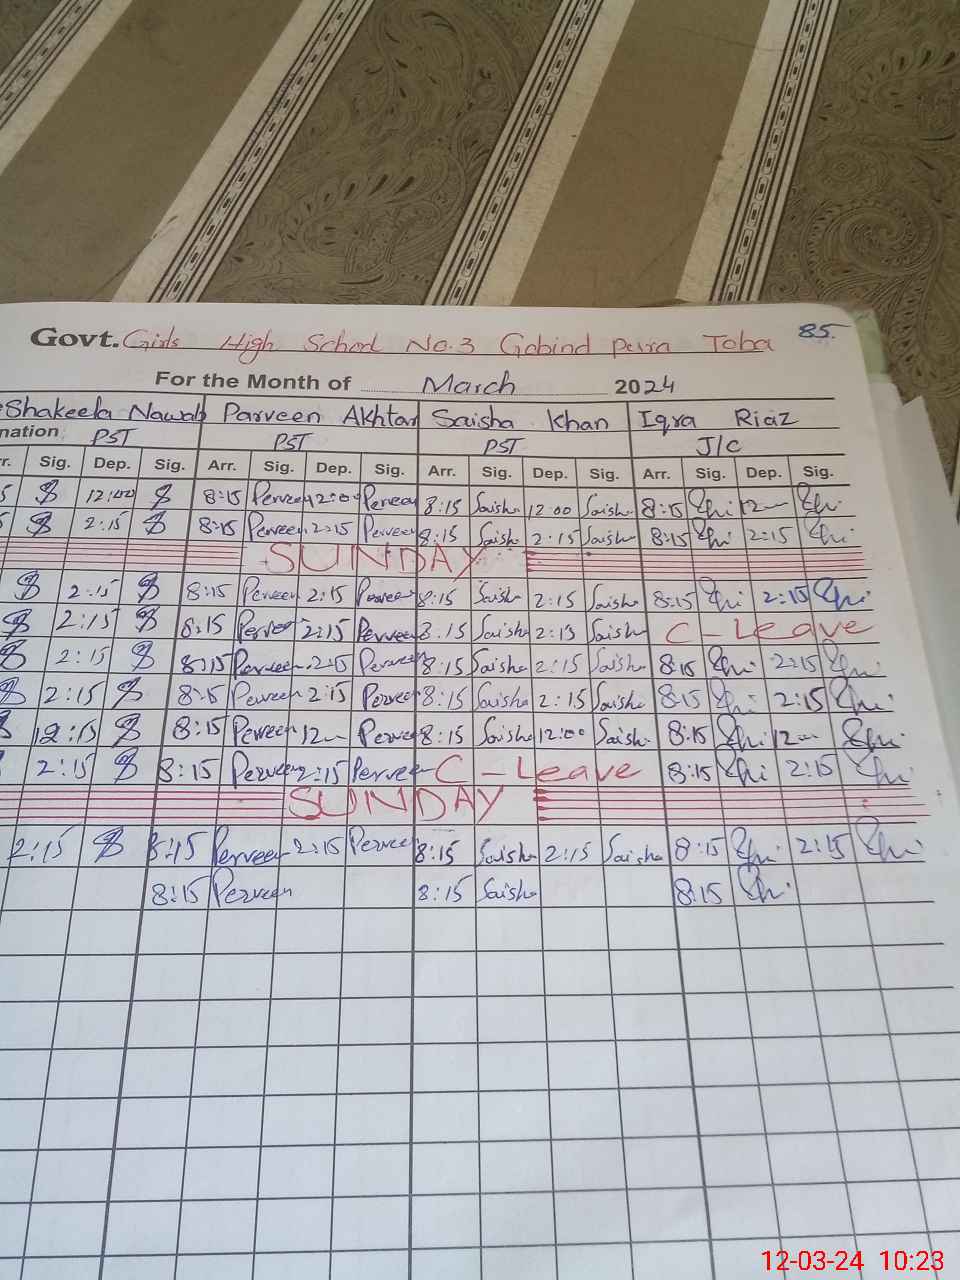 85.
Govt. Girls High School No.3 Gobind pura Toba
For the Month of March 2024
Shakeela Nawab Parveen Akhtar Saisha Khan Iqra Riaz
nation PST PST PST J/C
r. Sig. Dep. Sig. Arr. Sig. Dep. Sig. Arr. Sig. Dep. Sig. Arr. Sig. Dep. Sig.
5 12:00 8:15 Perveen 12:00 Perveen 8:15 Saisha 12:00 Saisha 8:15 12
5 2:15 8:15 Perveen 2:15 Perveen 8:15 Saisha 2:15 Saisha 8:15 2:15
SUNDAY
2:15 8:15 Perveen 2:15 Perveen 8:15 Saisha 2:15 Saisha 8:15 2:15
2:15 8:15 Perveen 2:15 Perveen 8:15 Saisha 2:15 Saisha C-Leave
2:15 8:15 Perveen 2:15 Perveen 8:15 Saisha 2:15 Saisha 8:15 2:15
2:15 8:15 Perveen 2:15 Perveen 8:15 Saisha 2:15 Saisha 8:15 2:15
12:15 8:15 Perveen 12 Perveen 8:15 Saisha 12:00 Saisha 8:15 12
2:15 8:15 Perveen 2:15 Perveen C-Leave 8:15 2:15
SUNDAY
2:15 8:15 Perveen 2:15 Perveen 8:15 Saisha 2:15 Saisha 8:15 2:15
8:15 Perveen 8:15 Saisha 8:15
12-03-24 10:23